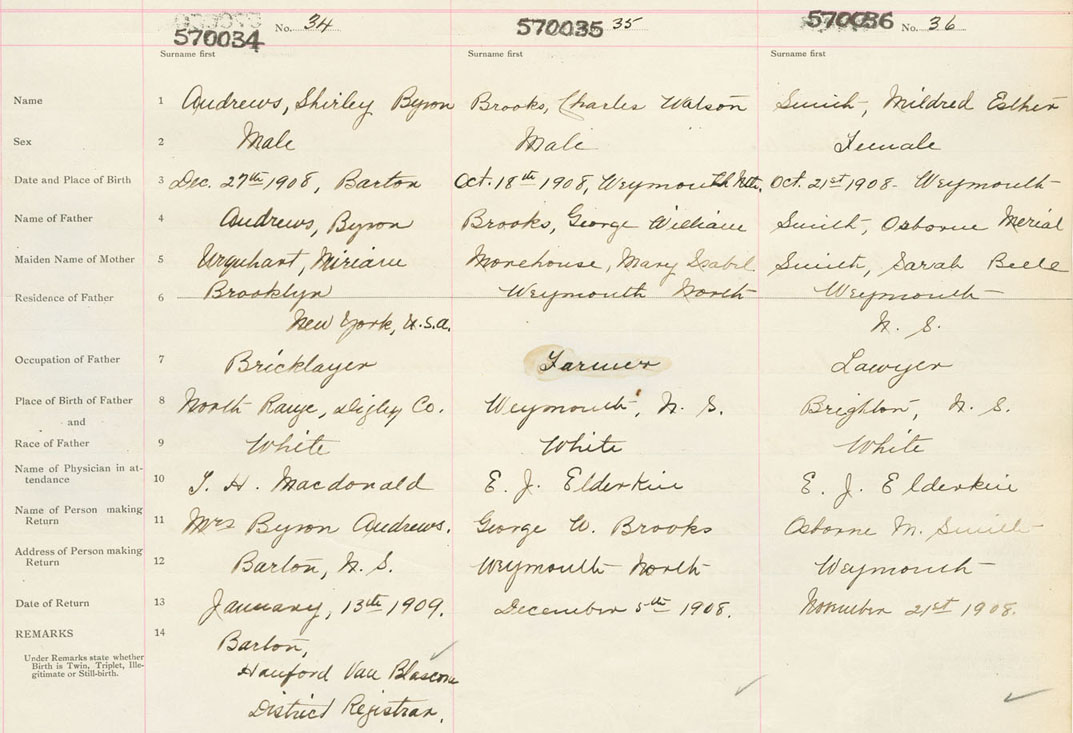 570034 No. 34 570035 35 570036 No. 36
Surname first Surname first Surname first
Name 1 Andrews, Shirley Byron Brooks, Charles Watson Smith, Mildred Esther
Sex 2 Male Male Female
Date and Place of Birth 3 Dec. 27th 1908, Barton Oct. 18th 1908, Weymouth Nth. Oct. 21st 1908 - Weymouth
Name of Father 4 Andrews, Byron Brooks, George William Smith, Osborne Merial
Maiden Name of Mother 5 Urquhart, Miriam Morehouse, Mary Isabel Smith, Sarah Belle
Residence of Father 6 Brooklyn Weymouth North Weymouth
New York, U.S.A. N. S.
Occupation of Father 7 Bricklayer Farmer Lawyer
Place of Birth of Father 8 North Range, Digby Co. Weymouth, N. S. Brighton, N. S.
and
Race of Father 9 White White White
Name of Physician in at-
tendance 10 H. Macdonald E. J. Elderkin E. J. Elderkin
Name of Person making
Return 11 Mrs Byron Andrews. George W. Brooks Osborne M. Smith
Address of Person making
Return 12 Barton, N. S. Weymouth North Weymouth
Date of Return 13 January, 13th 1909. December 5th 1908. November 21st 1908.
REMARKS 14 Barton,
Under Remarks state whether
Birth is Twin, Triplet, Ille-
gitimate or Still-birth.
Hanford Van Blascom
District Registrar.